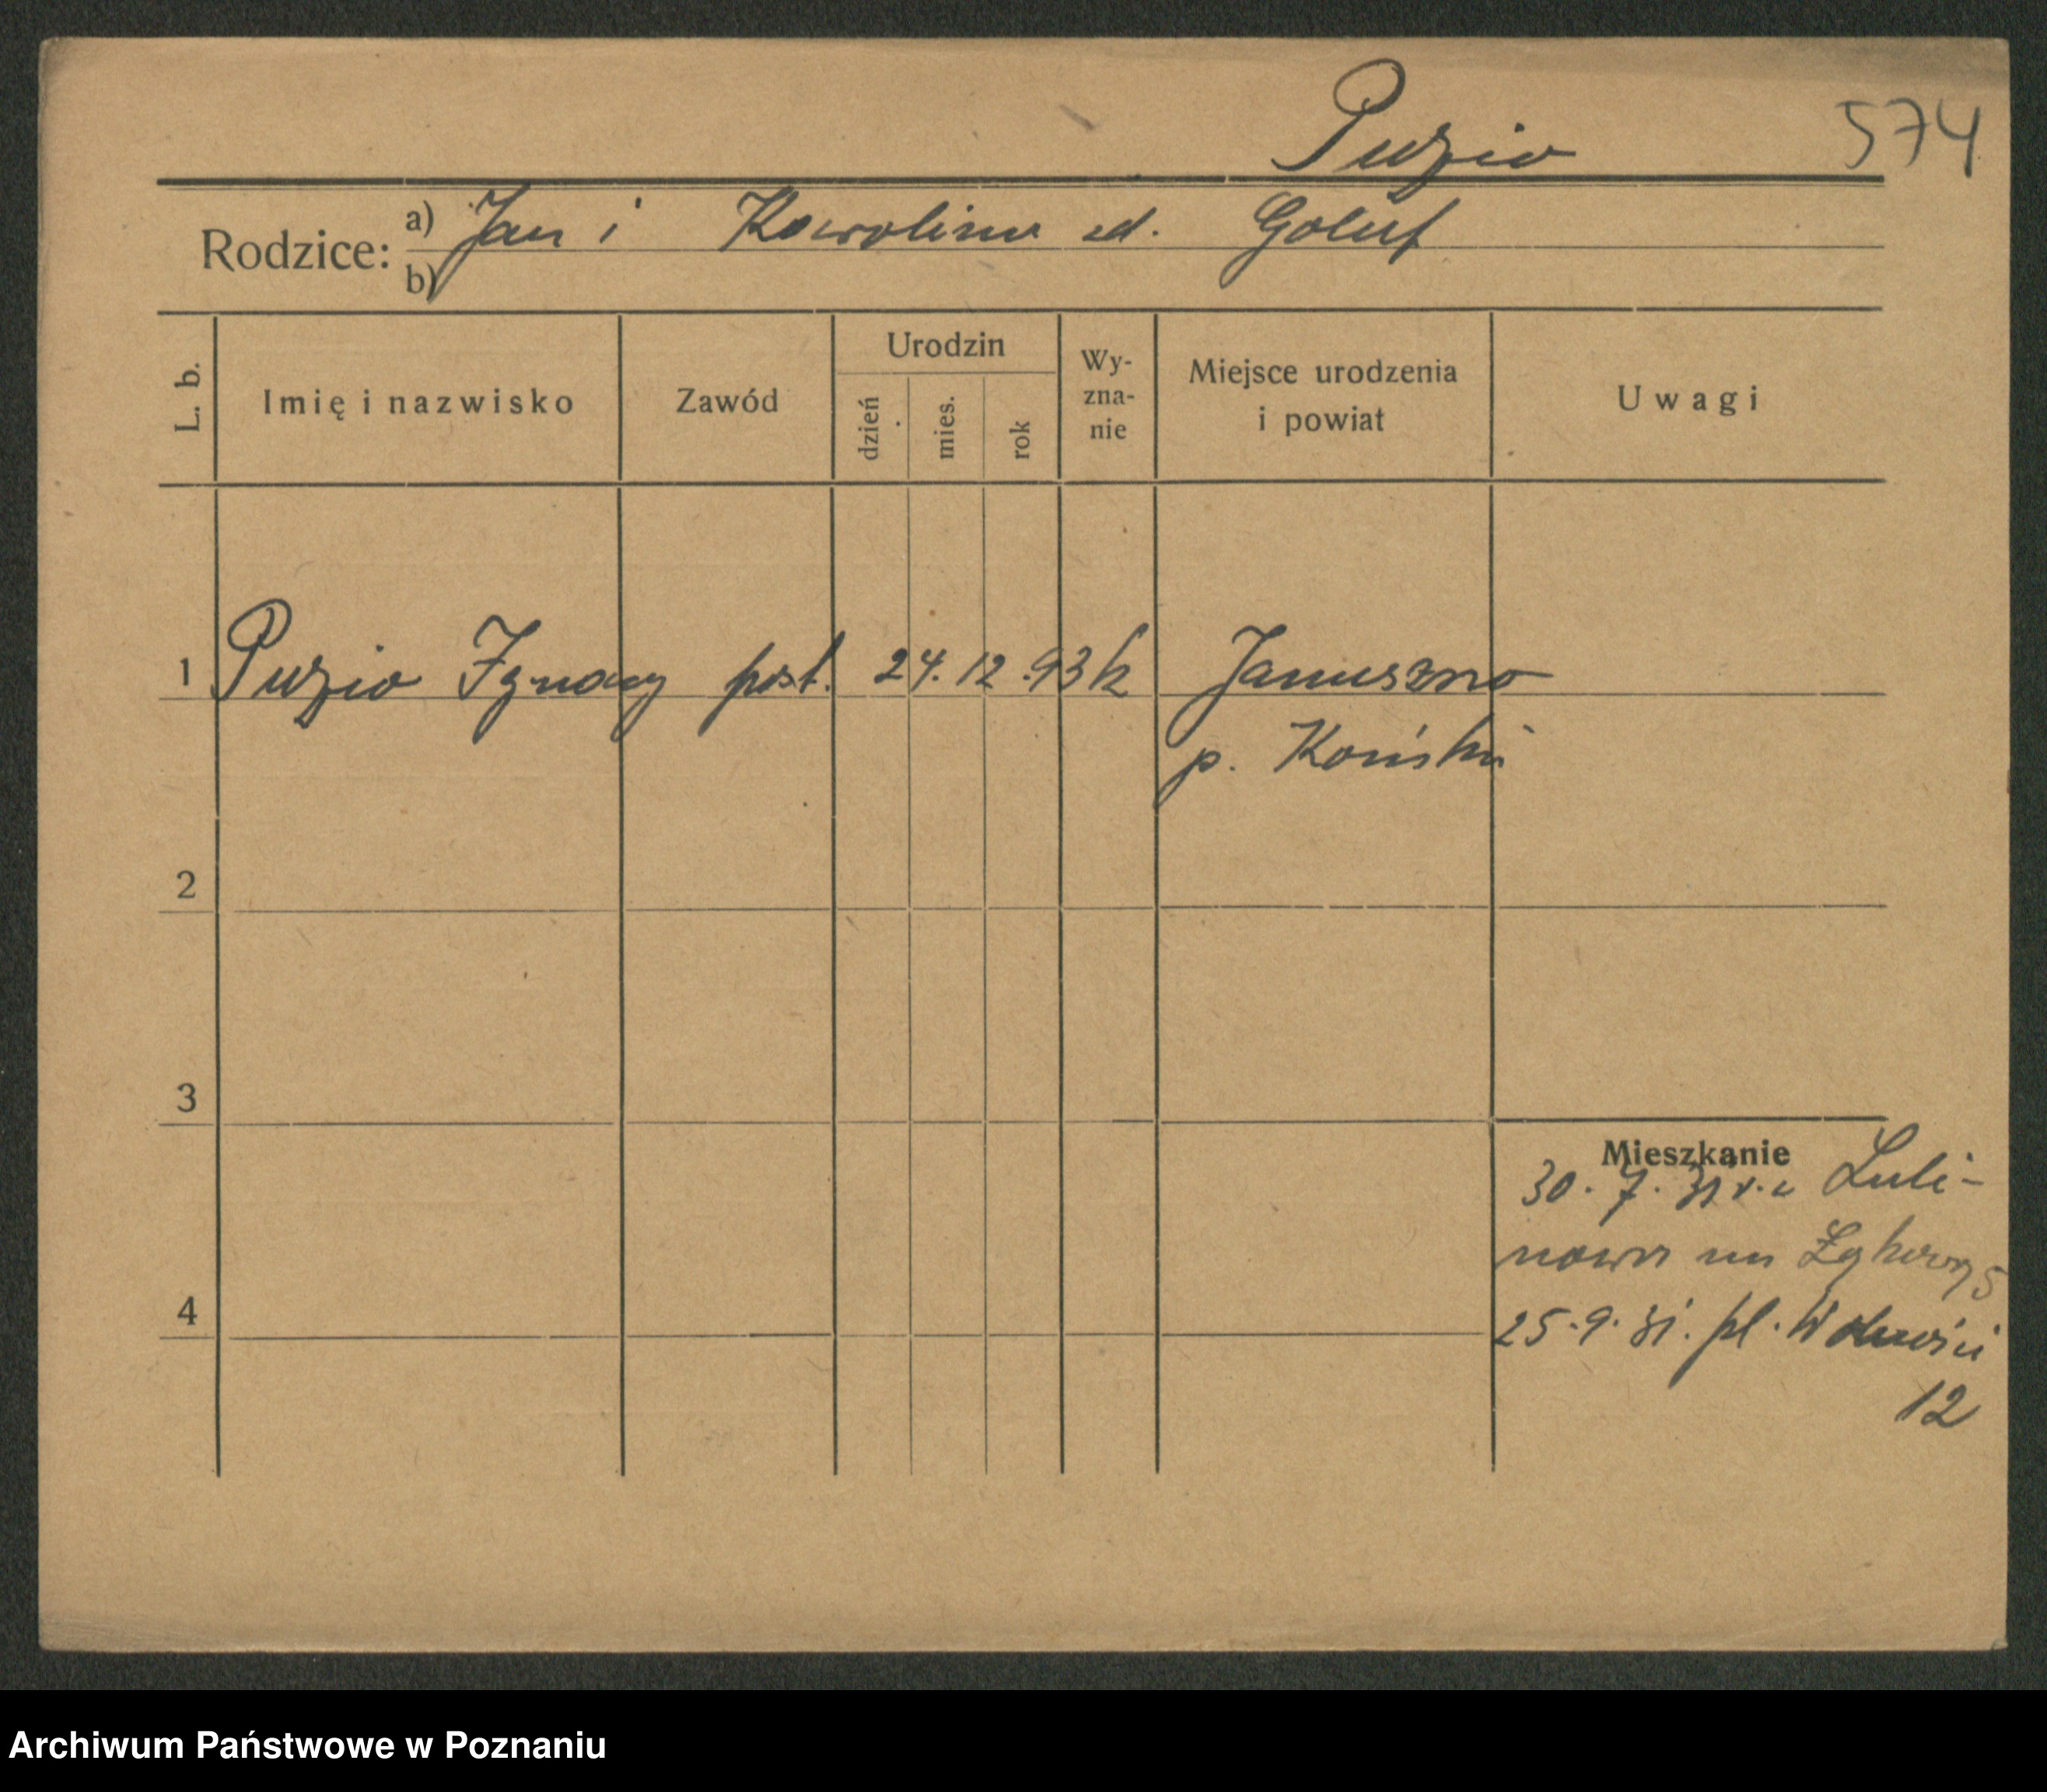 Puzio 574
Rodzice: a) Jan i Karolina zd. Goluf
b)
L. b. Imię i nazwisko Zawód Urodzin dzień mies. rok Wy-zna-nie Miejsce urodzenia i powiat Uwagi
1 Puzio Ignacy post. 24. 12. 93 k Januszno
p. Koński
2
3
Mieszkanie
30. 7. 31 Luli-
nowo
4
25. 9. 31. pl. Wolności
12
Archiwum Państwowe w Poznaniu